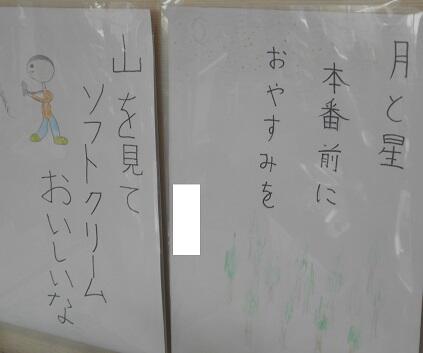 月と星
本番前に
おやすみを
山を見て
ソフトクリーム
おいしいな